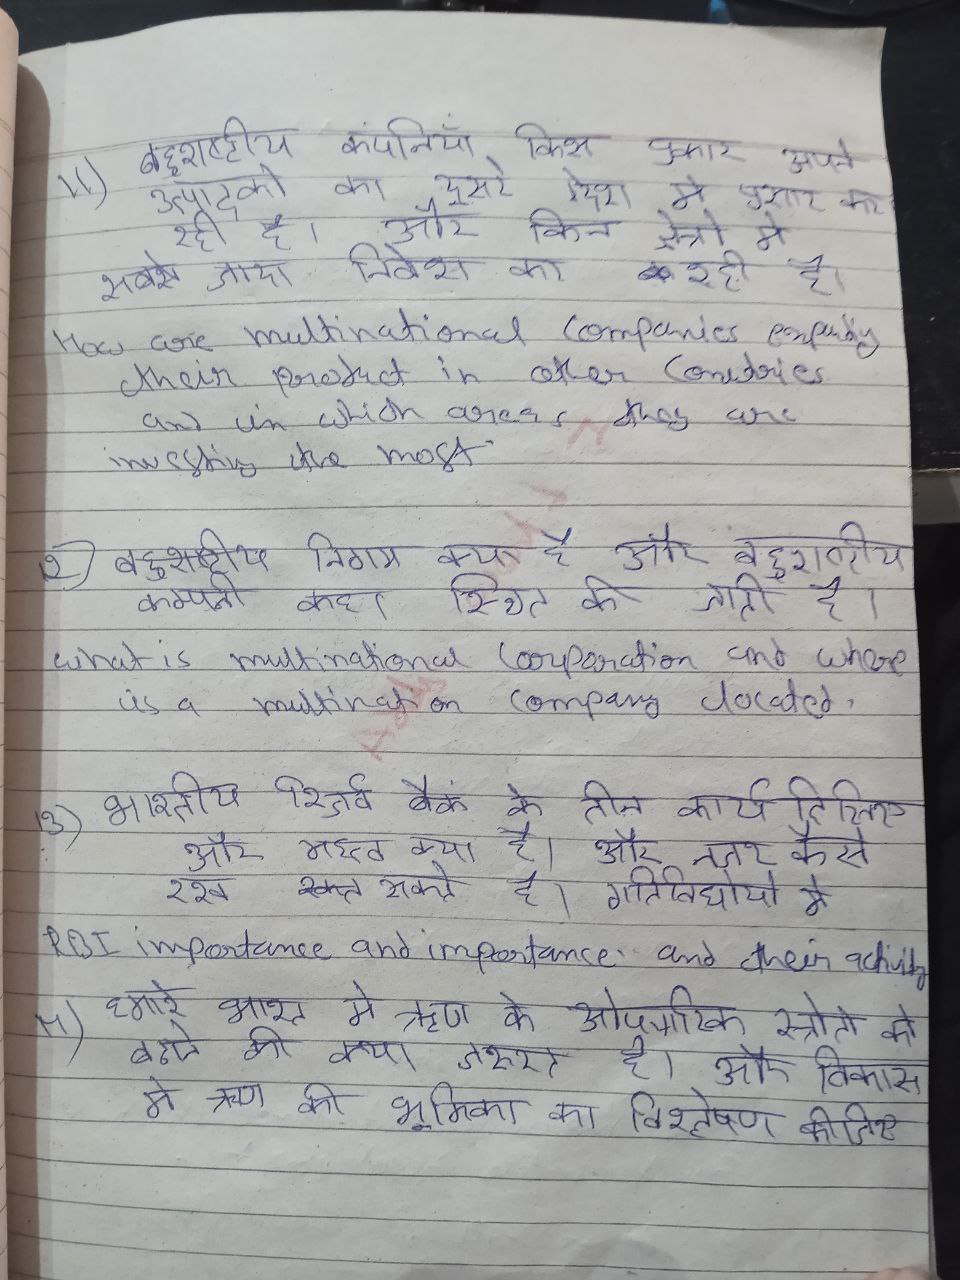 11) बहुराष्ट्रीय कंपनियाँ किस प्रकार अपने
उत्पादको का दूसरे देश में प्रसार कर
रही है। और किन क्षेत्रो में
सबसे जादा निवेश का रही है।
How are multinational companies
their product in other Countries
and in which areas they are
investing the most
12) बहुराष्ट्रीय निगम क्या है और बहुराष्ट्रीय
कम्पनी कहा स्थित की जाती है।
what is multinational Corporation and where
is a multination Company located.
13) भारतीय रिजर्व बैंक के तीन कार्य लिखिए
और महत्व क्या है। और नजर कैसे
रख सकते है। गतिविधीयो में
RBI importance and importance. and their activity
14) हमारे भारत में ऋण के औपचारिक स्त्रोतो को
बढाने की क्या जरूरत है। और विकास
में ऋण की भूमिका का विश्लेषण कीजिए